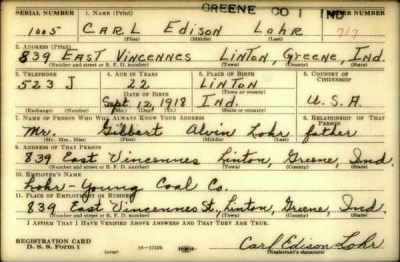 GREENE CO 1 IND
SERIAL NUMBER 1. NAME (Print) ORDER NUMBER
1005 CARL Edison Lohr 717
(First) (Middle) (Last)
2. ADDRESS (Print)
839 EAST VINCENNES LINTON, Greene, Ind.
(Number and street or R. F. D. number) (Town) (County) (State)
3. TELEPHONE 4. AGE IN YEARS 5. PLACE OF BIRTH 6. COUNTRY OF CITIZENSHIP
523 J 22 LINTON
DATE OF BIRTH (Town or county)
Sept. 12, 1918 Ind. U.S.A.
(Exchange) (Number) (Mo.) (Day) (Yr.) (State or country)
7. NAME OF PERSON WHO WILL ALWAYS KNOW YOUR ADDRESS 8. RELATIONSHIP OF THAT PERSON
Mr. Gilbert Alvin Lohr father
(Mr., Mrs., Miss) (First) (Middle) (Last)
9. ADDRESS OF THAT PERSON
839 East Vincennes Linton, Greene, Ind.
(Number and street or R. F. D. number) (Town) (County) (State)
10. EMPLOYER'S NAME
Lohr-Young Coal Co.
11. PLACE OF EMPLOYMENT OR BUSINESS
839 East Vincennes St., Linton, Greene, Ind.
(Number and street or R. F. D. number) (Town) (County) (State)
I AFFIRM THAT I HAVE VERIFIED ABOVE ANSWERS AND THAT THEY ARE TRUE.
REGISTRATION CARD
D. S. S. FORM 1 Carl Edison Lohr
(Registrant's signature)